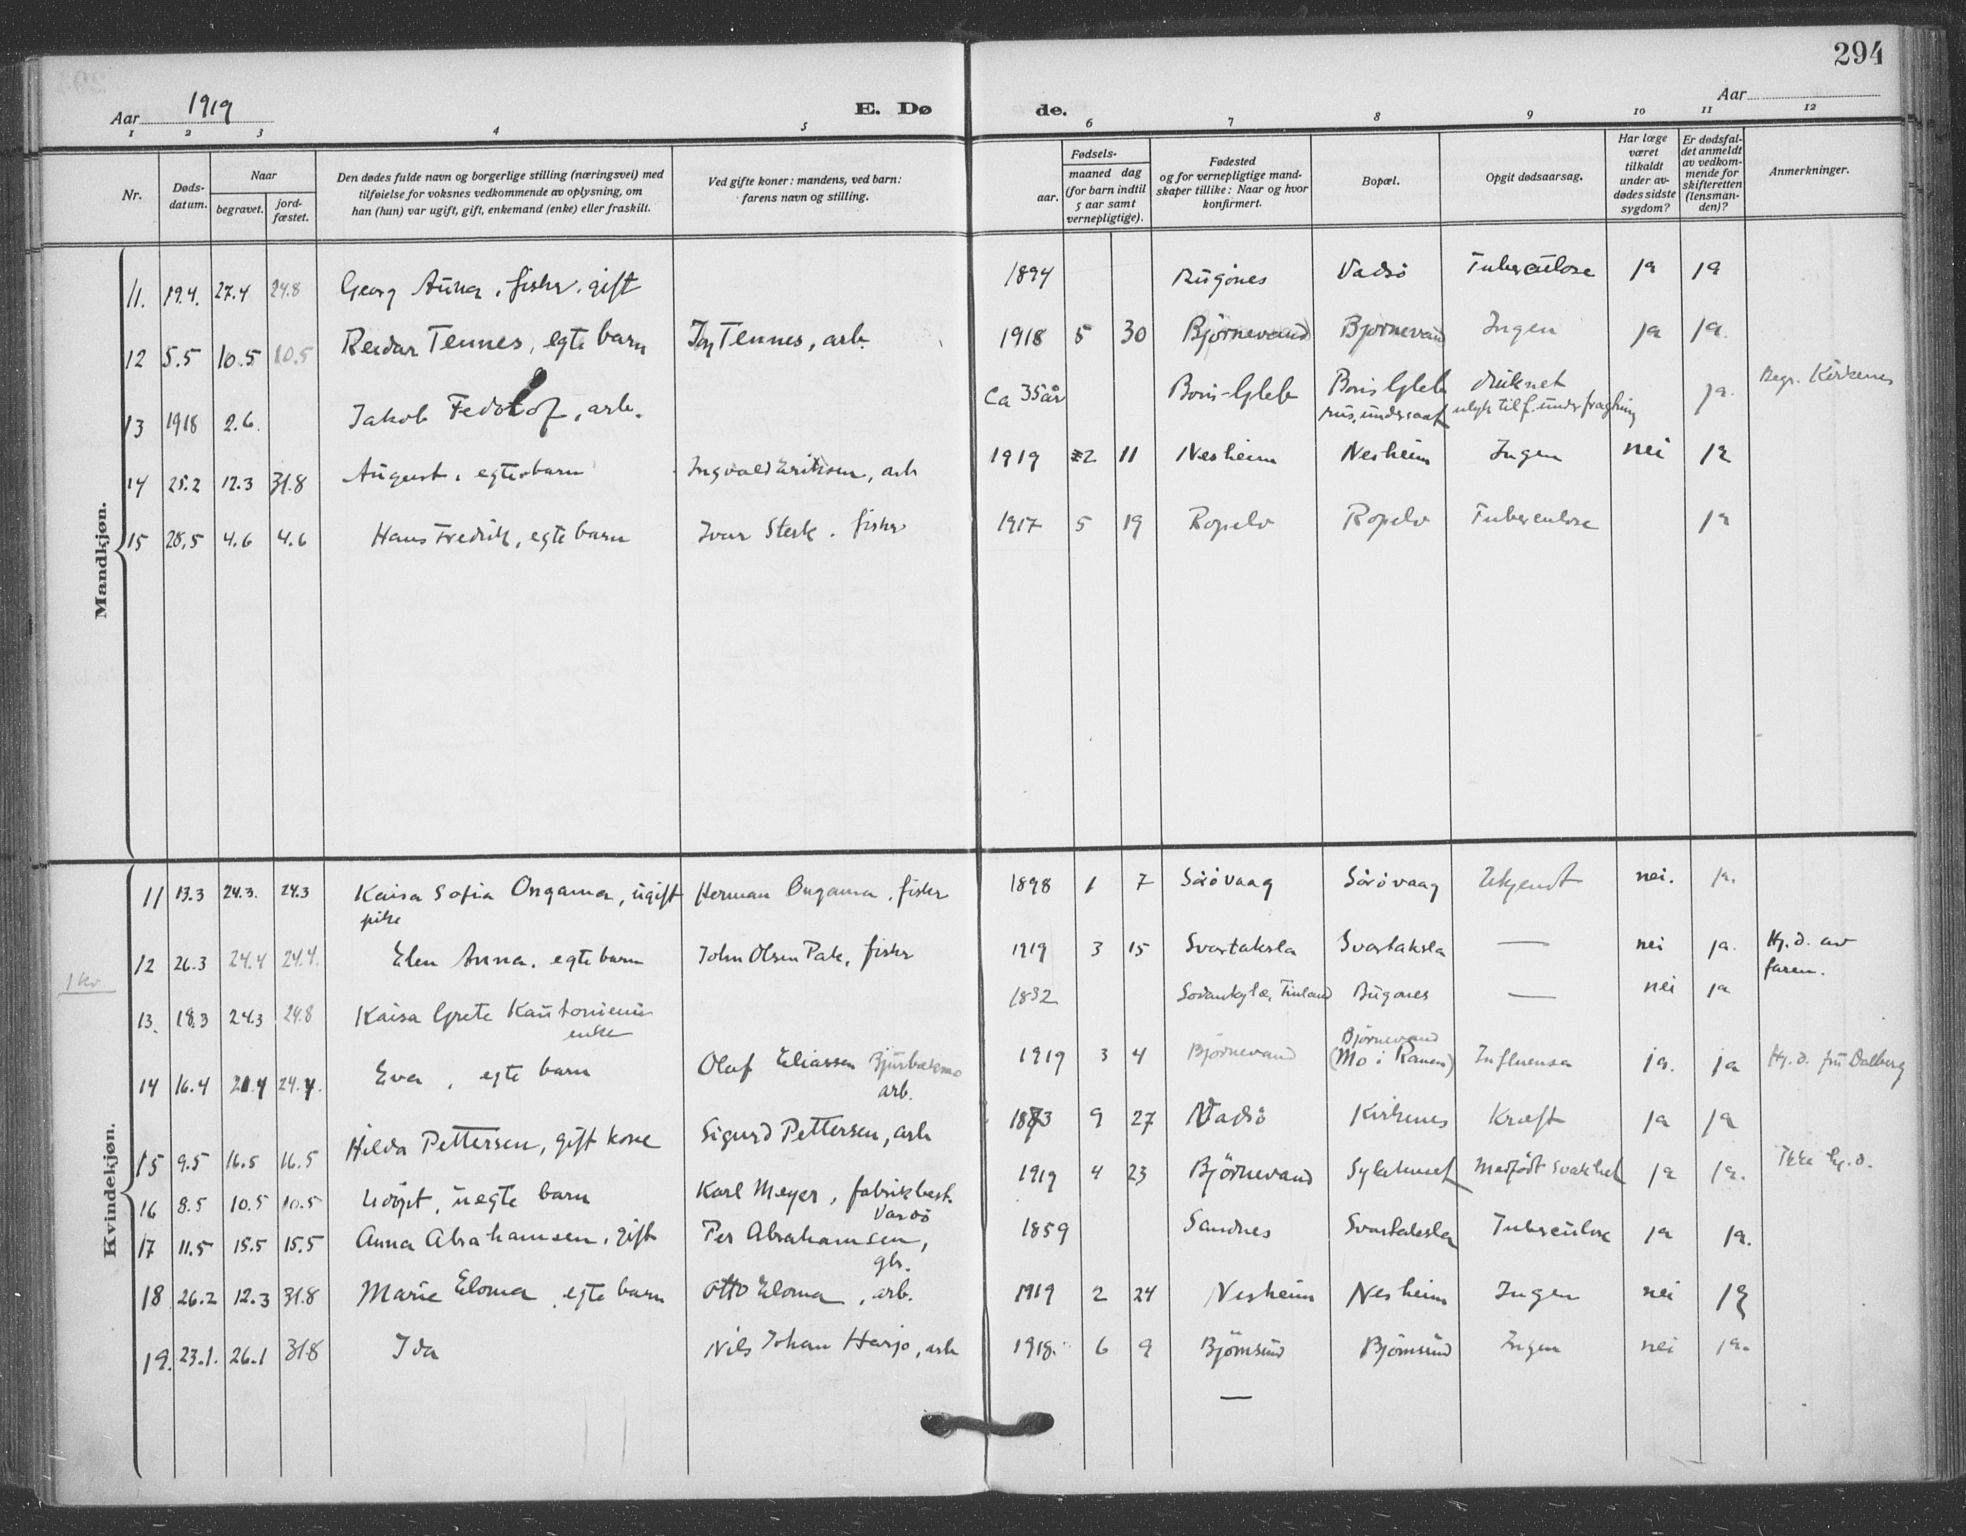 294
Aar 1919
E. Dø de.
Aar
1 2 3 4 5 6 7 8 9 10 11 12
Nr.
Døds-
datum.
Naar
begravet.
jord-
fæstet.
Den dødes fulde navn og borgerlige stilling (næringsvei) med
tilføielse for voksnes vedkommende av oplysning, om
han (hun) var ugift, gift, enkemand (enke) eller fraskilt.
Ved gifte koner: mandens, ved barn:
farens navn og stilling.
Fødsels-
aar.
maaned dag
(for barn indtil
5 aar samt
vernepligtige).
Fødested
og for vernepligtige mand-
skaper tillike: Naar og hvor
konfirmert.
Bopæl.
Opgit dødsaarsag.
Har læge
været
tilkaldt
under av-
dødes sidste
sygdom?
Er dødsfal-
det anmeldt
av vedkom-
mende for
skifteretten
(lensman-
den)?
Anmerkninger.
Mandkjøn.
11. 19.4. 27.4 24.8 Georg Auna, fisker, gift 1894 Bugønes Vadsö Tuberculose ja ja
12 5.5 10.5 10.5 Reidar Tennes, egte barn Tennes, arb. 1918 5 30 Björnevand Björnevand Ingen ja ja.
13 1918 2.6. Jakob Fedotof, arb. ca 35 år Boris-Gleb Boris Gleb druknet ja. Begr. Kirkenes
rus. undersaat ulyk. til f. under fragtning
14 25.2 12.3 31.8 August, egte barn Ingvald Eriksen, arb 1919 2 11 Nesheim Nesheim Ingen nei ja
15 28.5 4.6 4.6 Hans Fredrik, egte barn Ivar Sterk, fisker 1917 5 19 Ropelv Ropelv Tuberculose ja
Kvindekjøn.
11 13.3 24.3. 24.3 Kaisa Sofia Ongama, ugift Herman Ongama, fisker 1898 1 7 Sörövaag Sörövaag Ukjendt nei. ja.
pike
12 26.3 24.4 24.4. Elen Anna, egte barn John Olsen Pak, fisker 1919 3 15 Svartaksla Svartaksla — nei ja. Hj. d. av
faren.
1 kv
13. 18.3 24.3 24.8 Kaisa Grete 1832 Sodankylæ, Finland Bugönes — nei ja
enke
14 16.4 21.4 24.4. Eva, egte barn Olaf Eliassen 1919 3 4 Björnevand Björnevand Influensa ja. ja Hj. d. fru Dalberg
arb. (Mo i Ranen)
15 9.5 16.5 16.5 Hilda Pettersen, gift kone Sigurd Pettersen, arb 1873 9 27 Vadsö Kirkenes Kræft ja ja
16 8.5 10.5 10.5 Udöpt, uegte barn Karl Meyer, fabrikbest. 1919 4 23 Björnevand Sykehuset Medfödt svakhet ja ja. Ikke hj. d.
Vardö
17 11.5 15.5 15.5 Anna Abrahamsen, gift Per Abrahamsen, 1859 Sandnes Svartaksla Tuberculose ja ja.
gbr.
18 26.2 12.3 31.8 Marie Eloma, egte barn Otto Eloma, arb. 1919 2 24 Nesheim Nesheim Ingen nei ja
19. 23.1. 26.1 31.8 Ida Nils Johan Harjo, arb 1918. 6 9 Björnsund Björnsund Ingen nei ja.
—